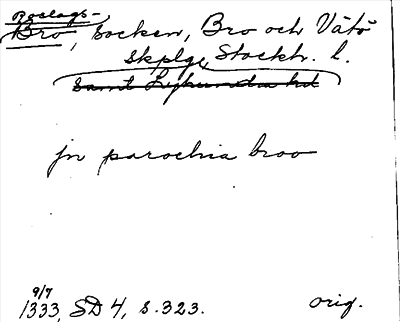 Roslags-
Bro, socken, Bro och Vätö
skplg Stockh. l.
samt Lyhundra hd
jn parochia broo
9/7
1333, SD 4, s. 323. orig.